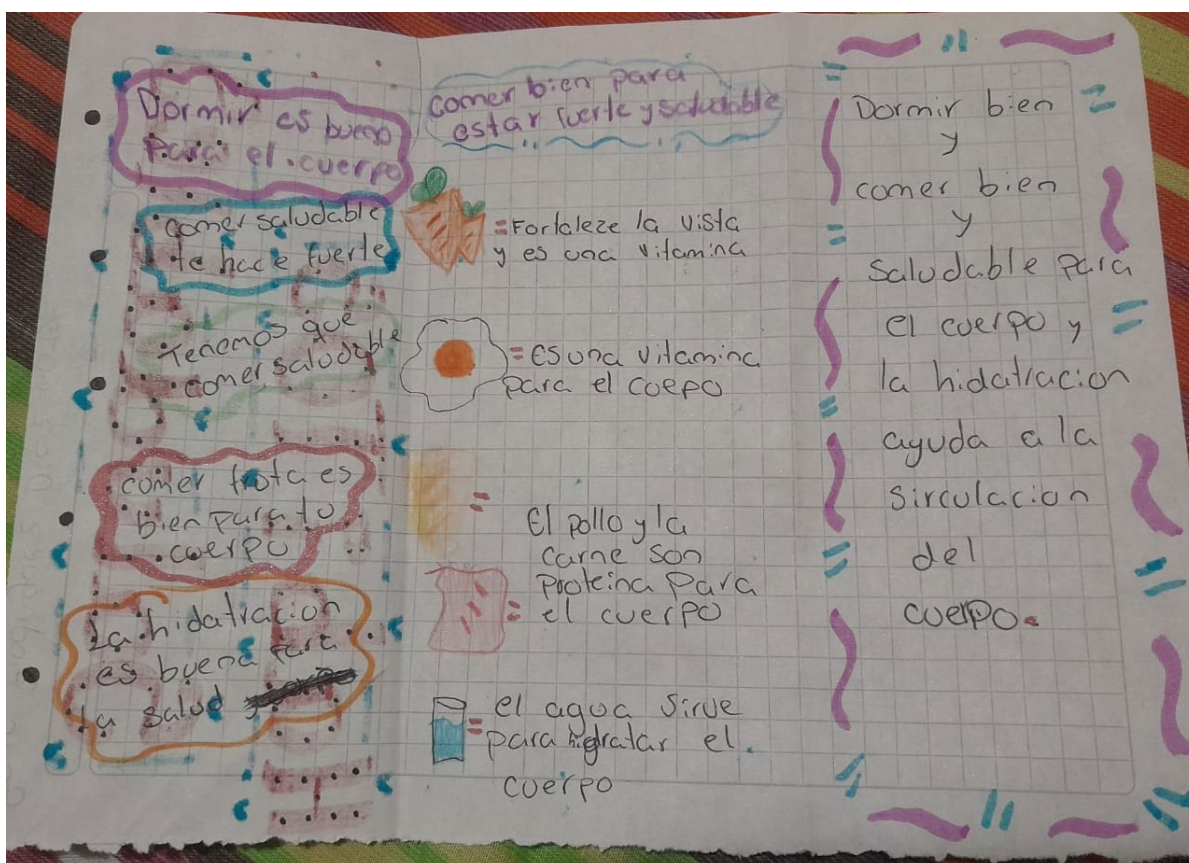 Dormir es bueno
Para el cuerpo
comer saludable
te hace fuerte
Tenemos que
comer saludable
comer fruta es
bien para tu
cuerpo
La hidatracion
es buena para
la salud
comer bien para
estar fuerte y saludable
= Fortaleze la vista
y es una vitamina
= es una vitamina
para el cuepo
=
El pollo y la
carne son
Proteina para
= el cuerpo
= el agua sirve
para hidratar el.
cuerpo
Dormir bien
y
comer bien
y
Saludable para
el cuerpo y
la hidatracion
ayuda a la
sirculacion
del
cuerpo.